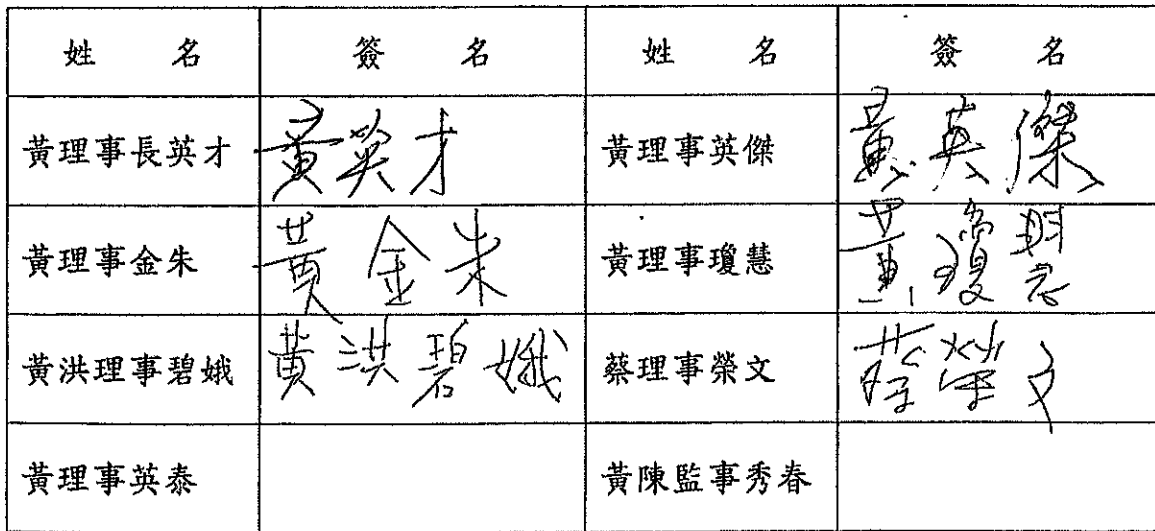 姓 名 簽 名 姓 名 簽 名
黃理事長英才 黃英才 黃理事英傑 黃英傑
黃理事金朱 黃金朱 黃理事瓊慧 黃瓊慧
黃洪理事碧娥 黃洪碧娥 蔡理事榮文 蔡榮文
黃理事英泰 黃陳監事秀春